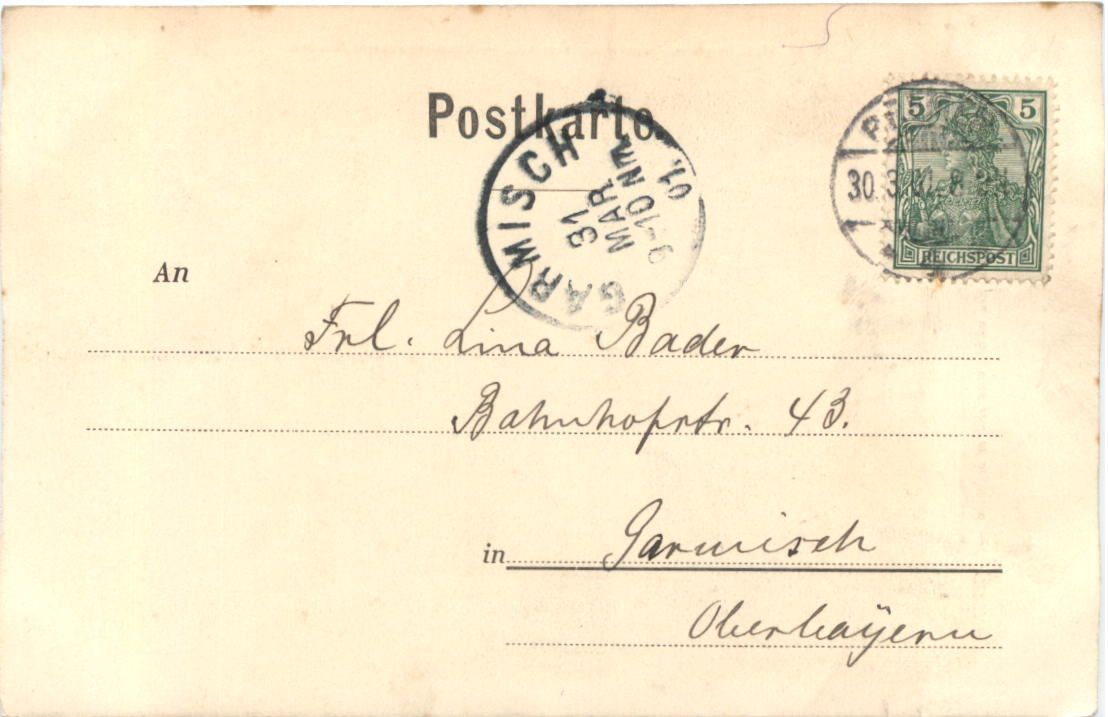 Postkarte.
GARMISCH
31
MAR
9-10 Nm.
01.
30.3.
5 5
REICHSPOST
An
Frl. Lina Bader
Bahnhofstr. 43.
in Garmisch
Oberbayern